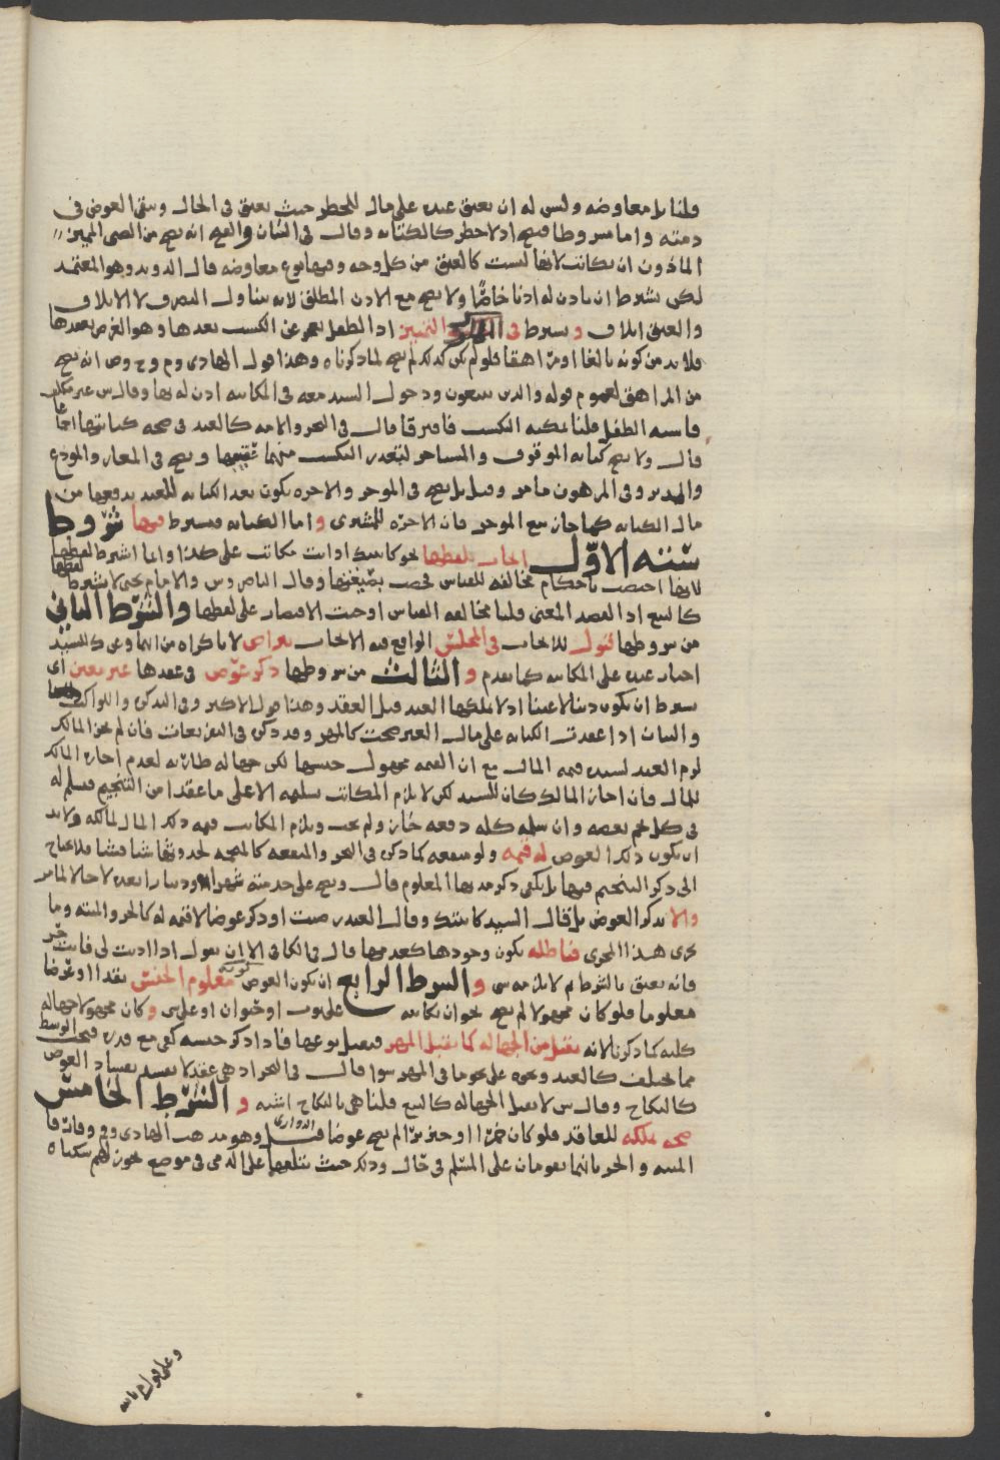 قلنا بل معاوضه وليس له ان يعتق عبده على مال للخطر حيث يعتق في الحال ويبقى العوض في
ذمته واما مشروطا فيصح اذ لا خطر كالكتابه وقال في البيان والاصح انه يصح من الصبي المميز
الماذون ان يكاتب لانها ليست كالعتق من كل وجه وفيها نوع معاوضه قال الدويد وهو المعتمد
لكن بشرط ان ياذن له اذنا خاصا ولا يصح مع الاذن المطلق لانه يتناول التصرف لا الاتلاف
والعتق اتلاف ويشترط في التمييز اذ الطفل يعجز عن الكسب بعدها وهو الغرض بعقدها
فلا بد من كونه بالغا او مراهقا فلو لم يكن كذلك لم يصح لما ذكرناه وهذا قول الهادي وم وح وص انه يصح
من المراهق لعموم قوله والذين يبتغون ودخول السيد معه في المكاتبه اذن له بها وقال ش غير مكلف
فاشبه الطفل قلنا يمكنه التكسب فافترقا قال في البحر والامه كالعبد في صحه كتابتها اجماعا
قال ولا يصح كتابه الموقوف والمستاجر لتعذر التكسب منهما ويصح في المعار والمودع
والمدبر وفي المرهون ما مر وقيل بل يصح في الموجر والاجره يكون بعد الكتابه للعبد يدفعها من
مال الكتابه كما جاز بيع الموجر فان الاجره للمشتري واما الكتابه فيشترط فيها شروط
سته الاول ايجاب بلفظها نحو كاتبتك او انت مكاتب على كذا وانما اشترط لفظها
لانها اختصت باحكام مخالفه للقياس فخصت بصيغتها وقال الناصر وش والامام يحيى لا يشترط لفظها
كالبيع اذ القصد المعنى قلنا مخالفه القياس اوجبت الاقتصار على لفظها والشرط الثاني
من شروطها قبول للايجاب في المجلس الواقع فيه الايجاب بتراض لا باكراه من ايهما وعن ك للسيد
اجبار عبده على المكاتبه كما تقدم والثالث من شروطها ذكر عوض في عقدها غير معين اي
بشرط ان يكون دينا لا عينا اذ لا يملكها العبد قبل العقد وهذا قول الاكثر وفي التذكره والكواكب
والبيان اذا عقدت الكتابه على مال الغير صحت كالمهر وقد ذكره في التفريعات فان لم يجز المالك
لزم العبد لسيده قيمه المال مع ان القيمه مجهول جنسها لكن جهاله طاريه لعدم اجازه المالك
للمال فان اجاز المالك كان للسيد لكن لا يلزم المكاتب تسليمه الا على ما عقدا من التنجيم فيسلم له
في كل نجم بعضه وان سلمه كله دفعه جاز ولم يجب ويلزم المكاتب قيمه ذلك المال لمالكه ولا بد
ان يكون ذلك العوض له قيمه ولو منفعه كما ذكره في البحر والمنفعه كالمنجمه لحدوثها شيا فشيا فلا يحتاج
الى ذكر التنجيم فيها بل يكفي ذكر مدتها المعلوم قال ويصح على خدمته شهرا ودينارا بعده لا حالا لما مر
والا يذكر العوض بل قال السيد كاتبتك وقال العبد رضيت او ذكر عوضا لا قيمه له كالحر والميته وما
جرى هذا المجرى فباطله يكون وجودها كعدمها قال في الكافي الا ان يقول اذا اديت لي فانت حر
فانه يعتق بالشرط ثم لا يلزمه شي والشرط الرابع ان يكون العوض معلوم الجنس نقدا او عرضا
معلوما فلو كان مجهولا لم يصح نحو ان يكاتبه على ثوب او حيوان او على شي وكان مجهولا جهاله
كليه كما ذكرنا لانه يقبل من الجهاله كما يقبل المهر فيصل نوعها فاذا ذكر جنسه كفى مع قدره فيجب الوسط
مما يختلف كالعبد ونحوه على نحو ما في المهر سوا قال في البحر اذ هي عقد لا يفسد بفساد العوض
كالنكاح وقال ش لا يقبل الجهاله كالبيع قلنا هي بالنكاح اشبه والشرط الخامس
صحه تملكه للعاقد فلو كان خمرا او خنزيرا لم يصح عوضا وهو مذهب الهادي وم وفارقا
الميته والحر بانهما يقومان على المسلم في حال وذلك حيث يتلفها على الذمي في موضع يجوز لهم سكناه